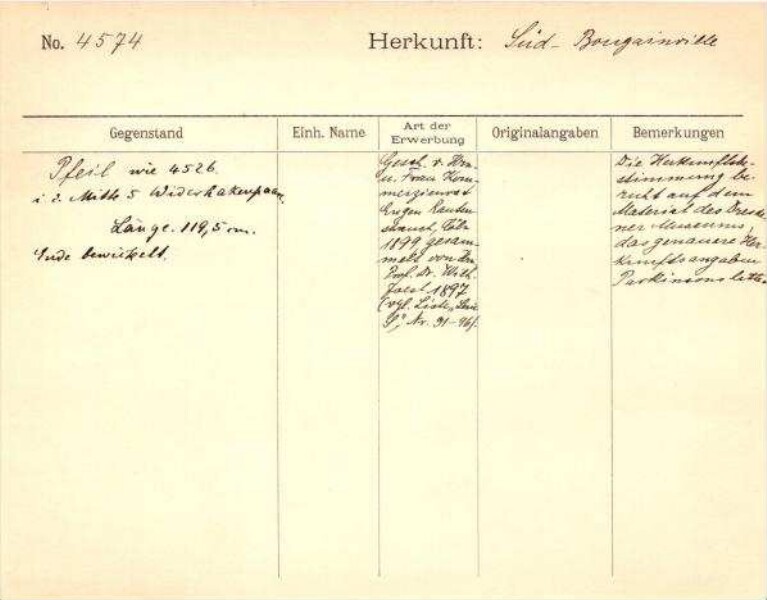 No. 4574
Herkunft: Süd-Bougainville
Gegenstand
Einh. Name
Art der
Erwerbung
Originalangaben
Bemerkungen
Pfeil wie 4526.
i. d. Mitte 5 Widerhakenpaare,
Länge. 119,5 cm.
Ende bewickelt.
Gesch. v. Hrn
u. Frau Kom-
merzienrat
Eugen Rauten-
strauch, Cöln
1899, gesam-
melt von Hrn
Prof. Dr. Wilh.
Joest 1897
(vgl. Liste,
S", Nr. 31-96).
Die Herkunftsbe-
stimmung be-
ruht auf dem
Material des Dresd-
ner Museums,
das genauere Her-
kunftsangaben
Parkinsons